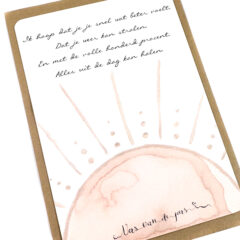 Ik hoop dat je je snel wat beter voelt.
Dat je weer kan stralen.
En met de volle honderd procent.
Alles uit de dag kan halen.